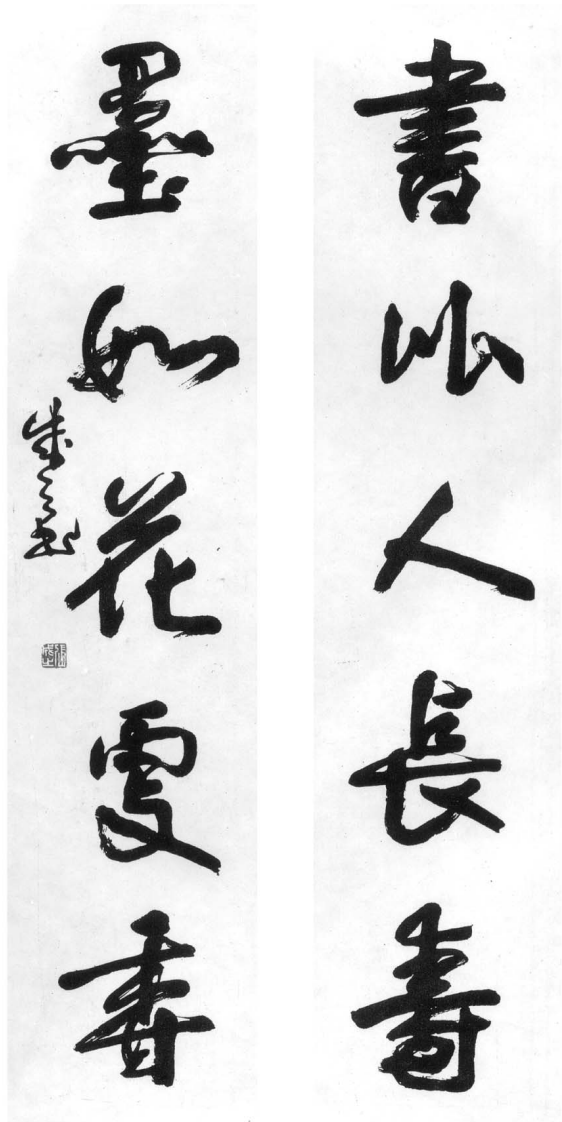 書似人長壽
墨如花更香
成之书